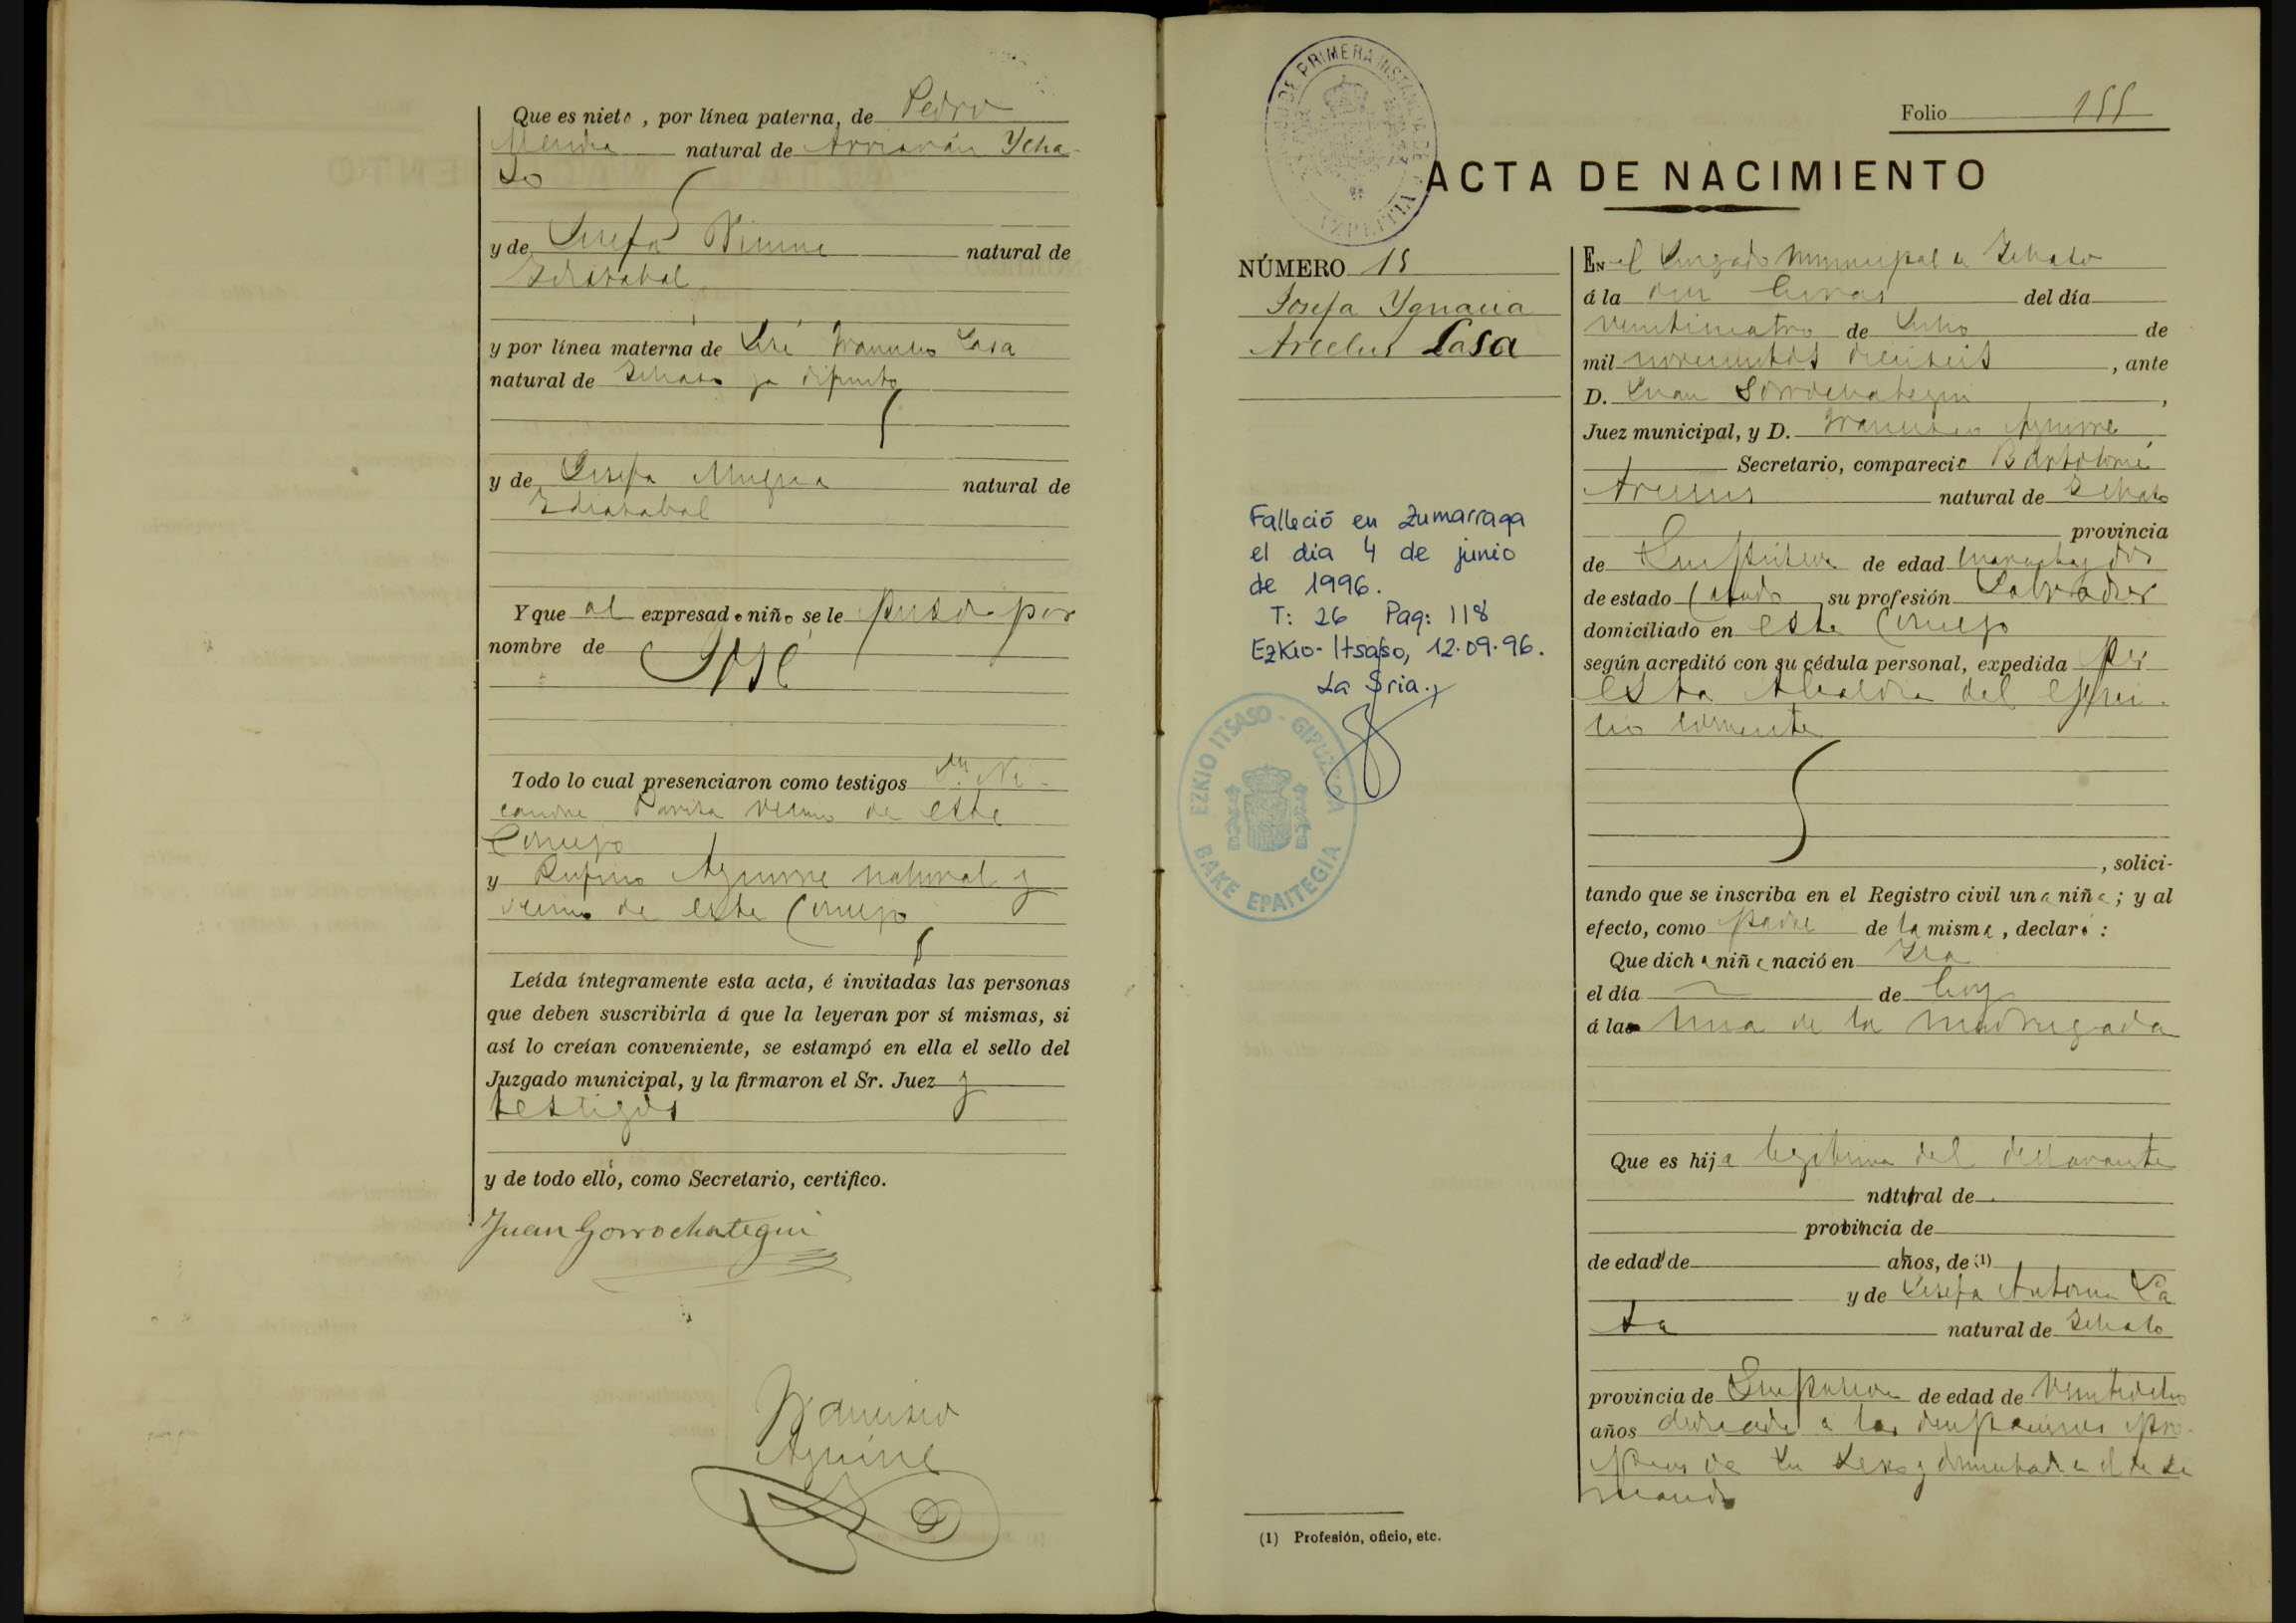 Que es nieto, por línea paterna, de Pedro
natural de Arriarán Ycha-
so
y de Josefa natural de
Idiazabal
y por línea materna de José Francisco Lasa
natural de Ichaso ya difunto
y de Josefa Mugica natural de
Idiazabal
Y que al expresado niño se le puso por
nombre de José
Todo lo cual presenciaron como testigos Dn. Ni-
vecino de este
Concejo
y Rufino Aguirre natural y
vecino de este Concejo
Leída íntegramente esta acta, é invitadas las personas
que deben suscribirla á que la leyeran por sí mismas, si
así lo creían conveniente, se estampó en ella el sello del
Juzgado municipal, y la firmaron el Sr. Juez y
testigos
y de todo ello, como Secretario, certifico.
Juan Gorrochategui
Francisco
Aguirre
DE PRIMERA INSTANCIA
AZPEITIA
Folio 155
ACTA DE NACIMIENTO
NÚMERO 15
Josefa Ygnacia
Arcelus Lasa
Falleció en Zumarraga
el dia 4 de junio
de 1996.
T: 26 Pag: 118
Ezkio-Itsaso, 12.09.96.
La Sria.
EZKIO ITSASO - GIPUZKOA
BAKE EPAITEGIA
En el Juzgado municipal de Ichaso
á la diez horas del día
veinticuatro de Julio de
mil novecientos dieciseis, ante
D. Juan Gorrochategui,
Juez municipal, y D. Francisco Aguirre
Secretario, compareció Bartolomé
Arcelus natural de Ichaso
provincia
de Guipúzcoa de edad cuarenta y dos
de estado Casado su profesión Labrador
domiciliado en este Concejo
según acreditó con su cédula personal, expedida por
esta Alcaldia del ejerci-
cio corriente
, solici-
tando que se inscriba en el Registro civil una niña; y al
efecto, como padre de la misma, declaró:
Que dicha niña nació en
el día de hoy
á las una de la madrugada
Que es hija legitima del declarante
natural de
provincia de
de edad de años, de (1)
y de Josefa Antonia La
sa natural de Ichaso
provincia de Guipúzcoa de edad de veintiocho
años dedicada a las ocupaciones pro-
pias de su sexo y domiciliada en el de su
marido
(1) Profesión, oficio, etc.